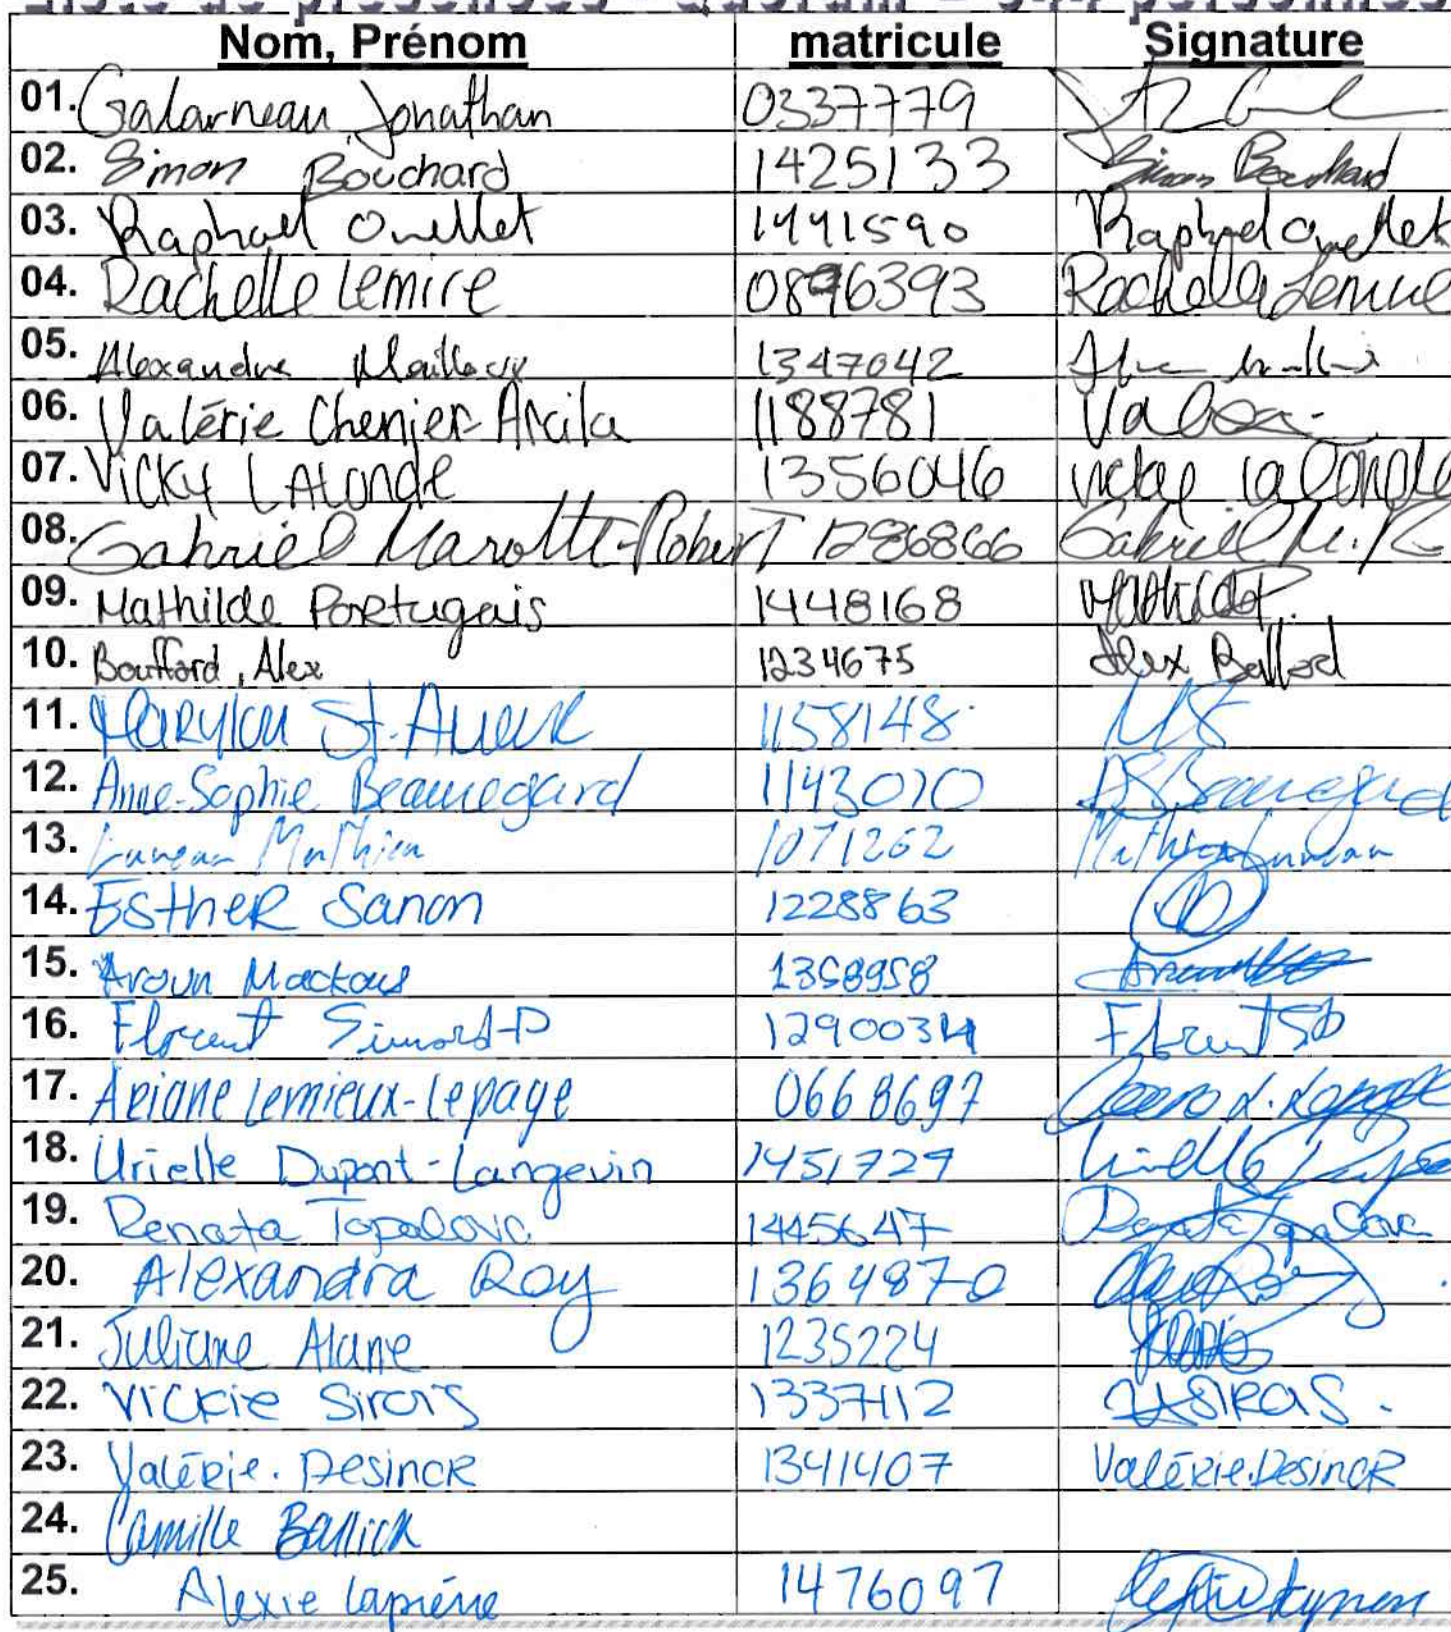 Liste de présences - Quorum - 344 personnes
Nom, Prénom matricule Signature
01. Galarneau, Jonathan 0337779
02. Simon Bouchard 1425133 Simon Bouchard
03. Raphael Ouellet 1441590 Raphael Ouellet
04. Rachelle Lemire 0896393 Rachelle Lemire
05. Alexandre Mailloux 1347042
06. Valérie Chenier-Arcila 1188781
07. Vicky LALonde 1356046 Vicky Lalonde
08. Gabriel Marotte-Robert 1286866 Gabriel M.R
09. Mathilde Portugais 1448168 Mathilde P.
10. Bouffard, Alex 1234675 Alex Bouffard
11. Marylou St. 1158148
12. Anne-Sophie Beauregard 1143010 AS Beauregard
13. Luneau Mathieu 1071262 Mathieu Luneau
14. EstheR Sanon 1228863
15. Aroun Mackous 1358958
16. Florent Simard-P 1290034 Florent SP
17. Ariane Lemieux-Lepage 0668697
18. Urielle Dupont-Langevin 1451729 Urielle
19. Renata Topalova 1445647 Renata Topalova
20. Alexandra Roy 1364870
21. Juliane Alane 1235224
22. Vickie Sirois 1337412
23. Valérie. DesinoR 1341407 Valérie.DesinoR
24. Camille
25. Alexie Lapierre 1476097